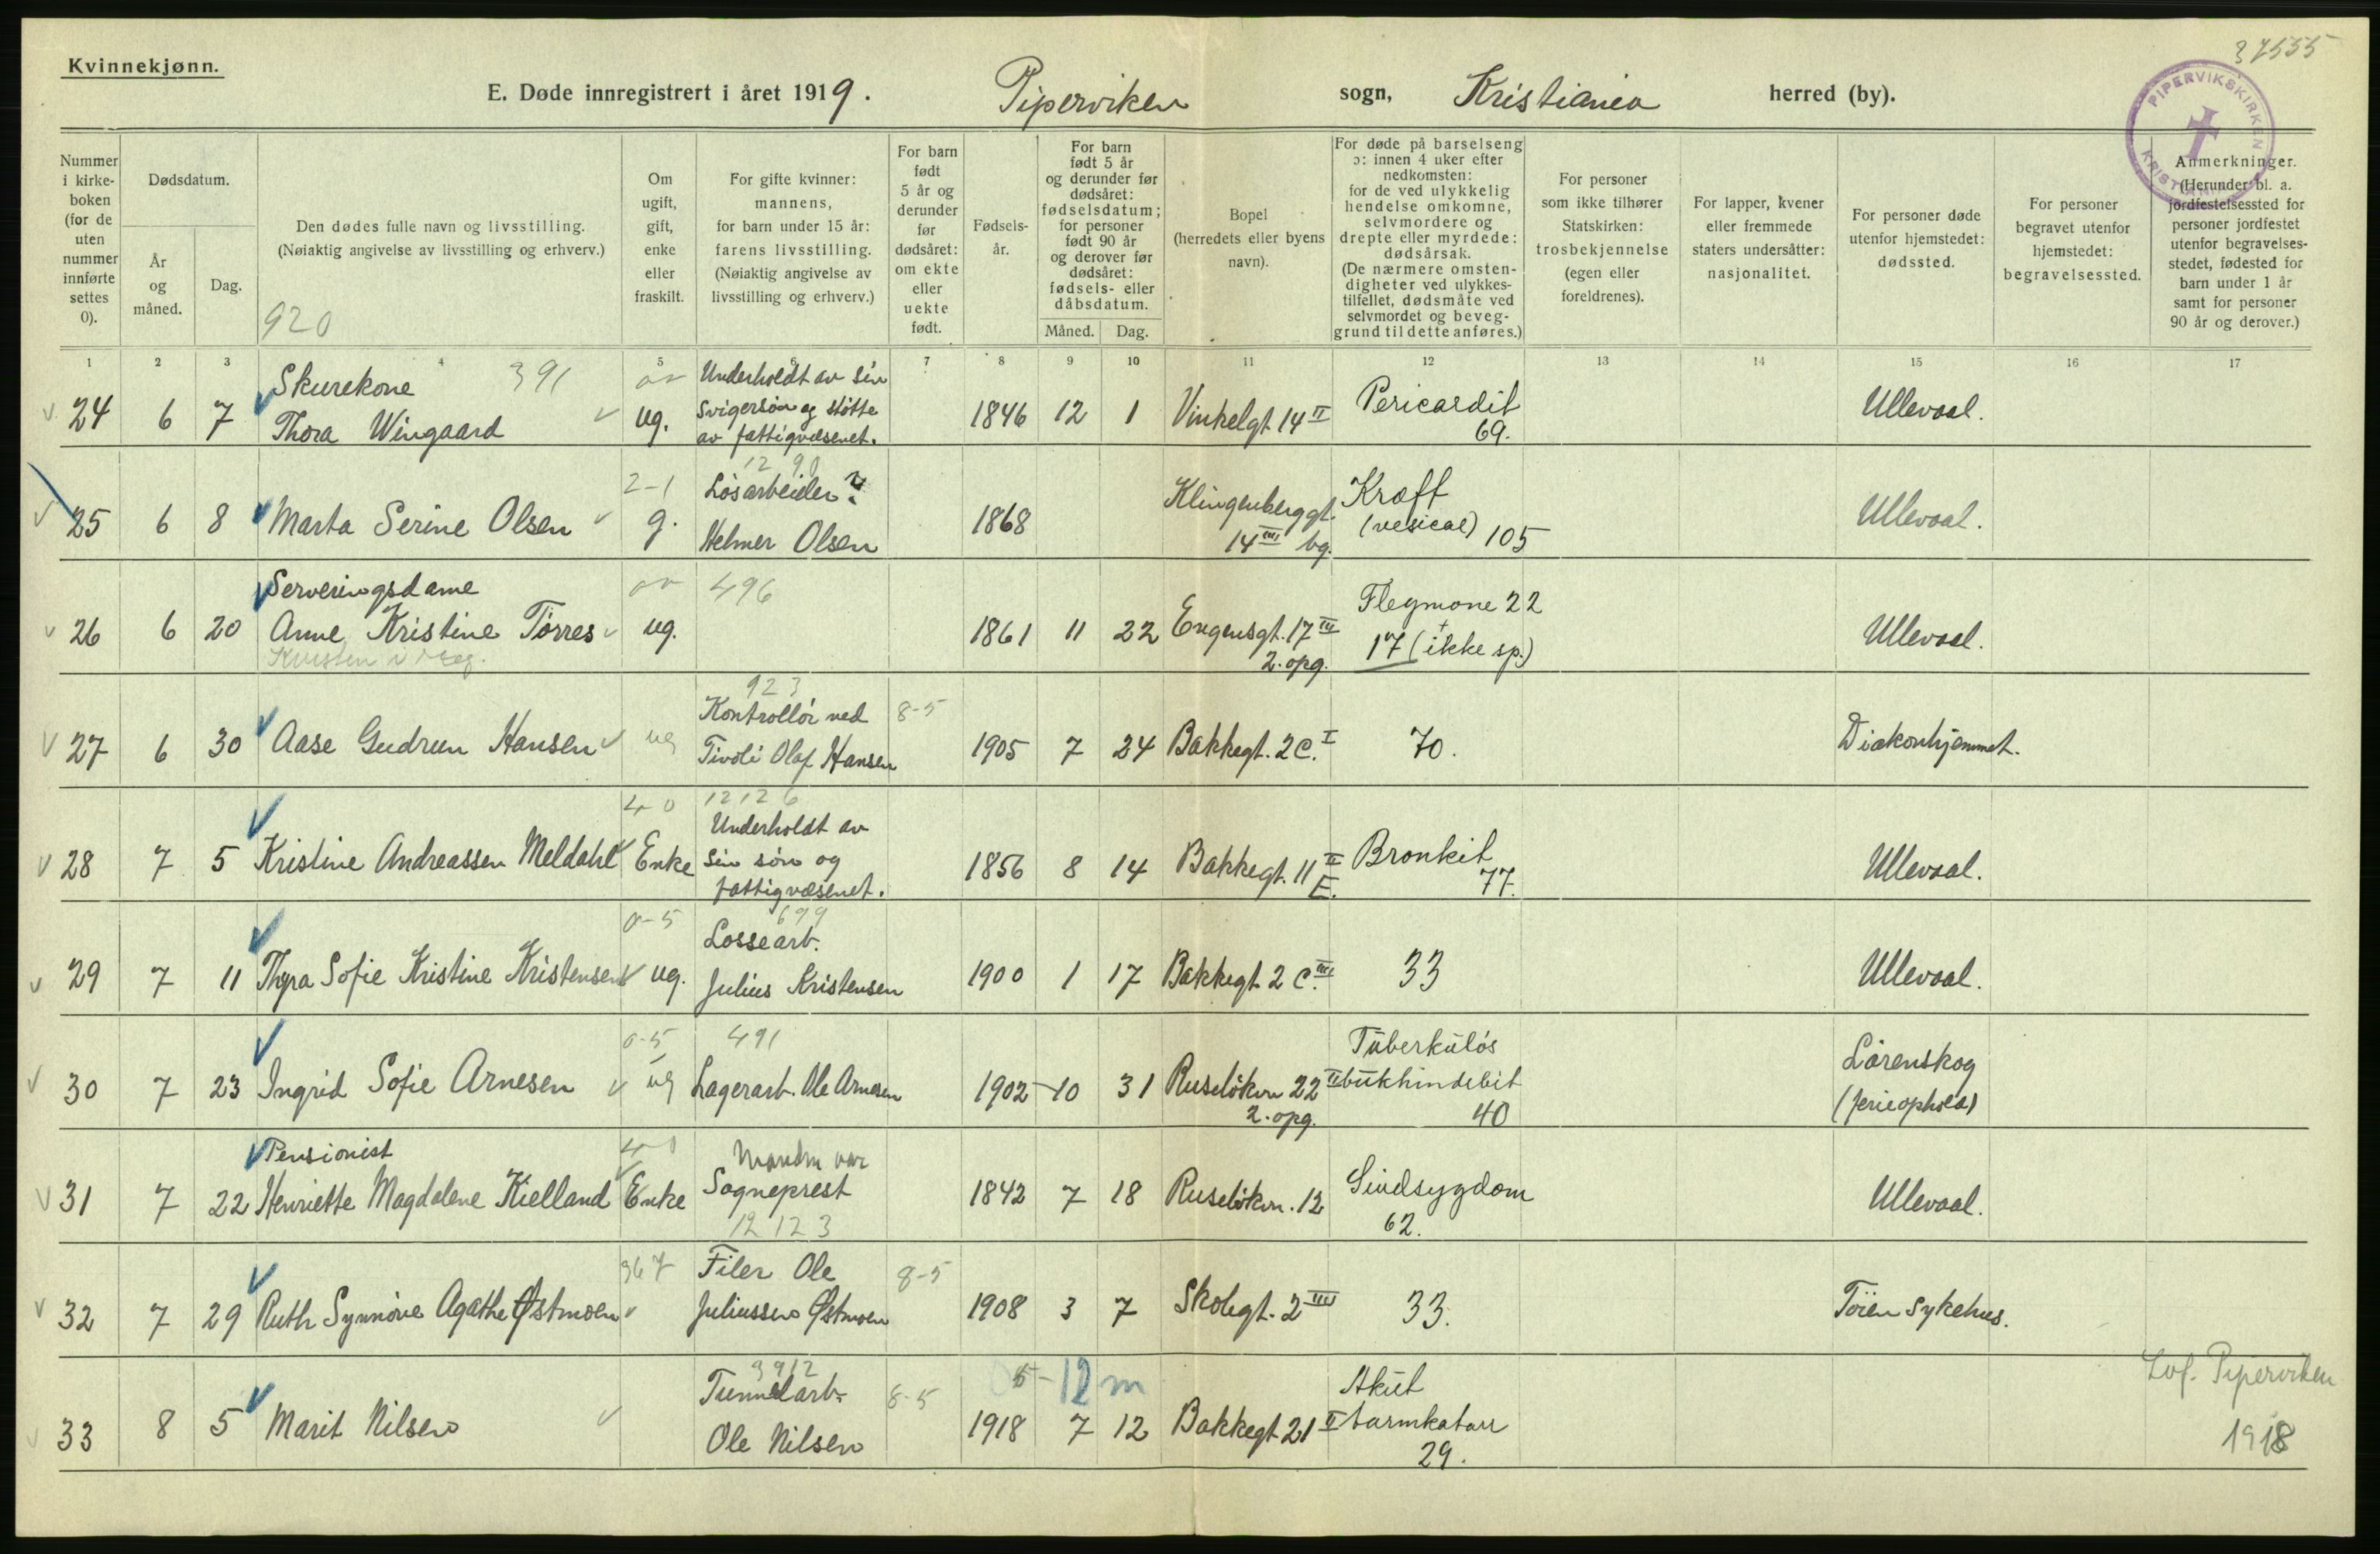 37555
Kvinnekjønn.
E. Døde innregistrert i året 1919. Piperviken sogn, Kristiania herred (by).
PIPERVIKSKIRKEN KRISTIANIA
Nummer i kirke-boken (for de uten nummer innførte settes 0).
Dødsdatum.
År og måned.
Dag.
Den dødes fulle navn og livsstilling.
(Nøiaktig angivelse av livsstilling og erhverv.)
920
Om ugift, gift, enke eller fraskilt.
For gifte kvinner: mannens, for barn under 15 år: farens livsstilling. (Nøiaktig angivelse av livsstilling og erhverv.)
For barn født 5 år og derunder før dødsåret: om ekte eller uekte født.
Fødsels-år.
For barn født 5 år og derunder før dødsåret: fødselsdatum; for personer født 90 år og derover før dødsåret: fødsels- eller dåbsdatum.
Måned. Dag.
Bopel (herredets eller byens navn).
For døde på barselseng ɔ: innen 4 uker efter nedkomsten: for de ved ulykkelig hendelse omkomne, selvmordere og drepte eller myrdede: dødsårsak. (De nærmere omsten-digheter ved ulykkes-tilfellet, dødsmåte ved selvmordet og beveg-grund til dette anføres.)
For personer som ikke tilhører Statskirken: trosbekjennelse (egen eller foreldrenes).
For lapper, kvener eller fremmede staters undersåtter: nasjonalitet.
For personer døde utenfor hjemstedet: dødssted.
For personer begravet utenfor hjemstedet: begravelsessted.
Anmerkninger. (Herunder bl. a. jordfestelsessted for personer jordfestet utenfor begravelses-stedet, fødested for barn under 1 år samt for personer 90 år og derover.)
1 2 3 4 5 6 7 8 9 10 11 12 13 14 15 16 17
Skurekone 391 Underholdt av sin
24 6 7 Thora Wingaard ug. Svigersön og støtte av fattigvæsenet. 1846 12 1 Vinkelgt 14 II Pericardit 69. Ullevaal.
2-1 12 90 Lösarbeider?
25 6 8 Marta Serine Olsen g. Helmer Olsen 1868 Klingenberggt. 14 III bg. Kræft (vesicae) 105 Ullevaal.
Serveringsdame 496
26 6 20 Anne Kristine Törres ug. 1861 11 22 Engensgt. 17 III 2. opg. Flegmone 22 17 (ikke sp.) Ullevaal.
923 Kontrollör ved 8-5
27 6 30 Aase Gudrun Hansen ug Tivoli Olaf Hansen 1905 7 24 Bakkegt. 2 C. I 70. Diakonhjemmet.
4-0 12126 Underholdt av
28 7 5 Kristine Andreassen Meldahl Enke Sin sön og fattigvæsenet. 1856 8 14 Bakkegt. 11 II E. Bronkit 77. Ullevaal.
0-5 699 Lossearb.
29 7 11 Thyra Sofie Kristine Kristensen ug. Julius Kristensen 1900 1 17 Bakkegt 2 C. III 33 Ullevaal.
0-5 491
30 7 23 Ingrid Sofie Arnesen ug Lagerarb. Ole Arnesen 1902 10 31 Ruselökvn 22 II 2. opg. Tuberkulös bukhindebet 40 Lörenskog
Pensionist 4-0 Manden var
31 7 22 Henriette Magdalene Kielland Enke Sogneprest 12 12 3 1842 7 18 Ruselökvn. 12 Sindsygdom 62. Ullevaal.
367 Filer Ole 8-5
32 7 29 Ruth Synnöve Agathe Østmoen Juliussen Østmoen 1908 3 7 Skolegt. 2 III 33. Töien sykehus.
3912 Tunnelarb. 8-5 5-12 m
33 8 5 Marit Nilsen Ole Nilsen 1918 7 12 Bakkegt 21 II Akut tarmkatarr 29. Piperviken 1918